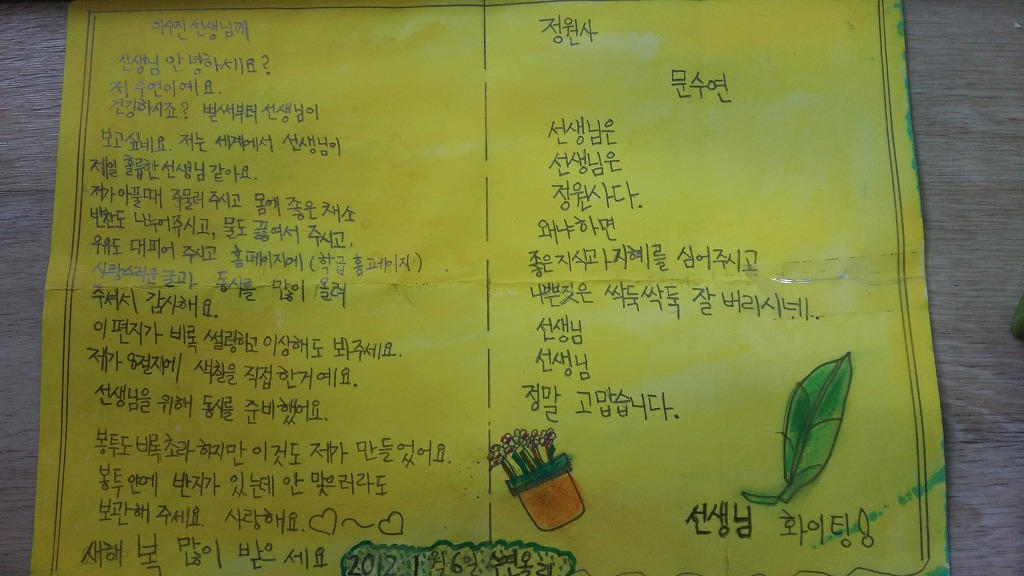 이수진 선생님께
선생님 안녕하세요?
저 수연이예요.
건강하시죠? 벌써부터 선생님이
보고싶네요. 저는 세계에서 선생님이
제일 훌륭한 선생님 같아요.
제가 아플때 주물러 주시고 몸에 좋은 채소
반찬도 나누어주시고, 물도 끓여서 주시고,
우유도 데피어 주시고 홈페이지에 (학급 홈페이지)
사랑스러운 글과 동시를 많이 올려
주셔서 감사해요.
이 편지가 비록 썰렁하고 이상해도 봐주세요.
제가 8절지에 색칠을 직접 한거예요.
선생님을 위해 동시를 준비했어요.
봉투도 비록 초라하지만 이것도 제가 만들었어요.
봉투 안에 반지가 있는데 안 맞으러라도
보관해 주세요. 사랑해요.♡~♡
새해 복 많이 받으세요
2012 1월 6일 수연올림
정원사
문수연
선생님은
선생님은
정원사다.
왜냐하면
좋은 지식과 지혜를 심어주시고
나쁜짓은 싹둑싹둑 잘 버리시네..
선생님
선생님
정말 고맙습니다.
선생님 화이팅!